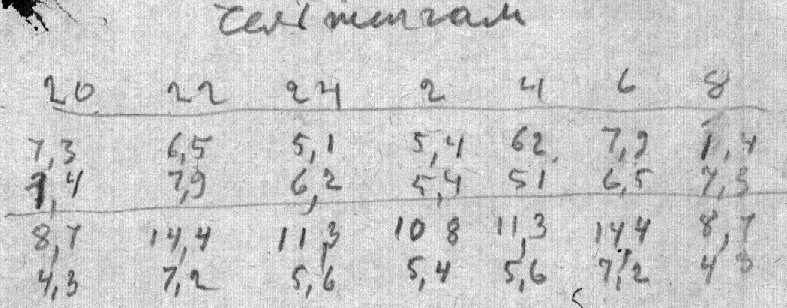 20 22 24 2 4 6 8
7,3 6,5 5,1 5,4 62 7,9 1,4
1,4 7,9 6,2 5,4 51 6,5 7,3
8,7 14,4 11,3 10 8 11,3 14,4 8,7
4,3 7,2 5,6 5,4 5,6 7,2 4 3